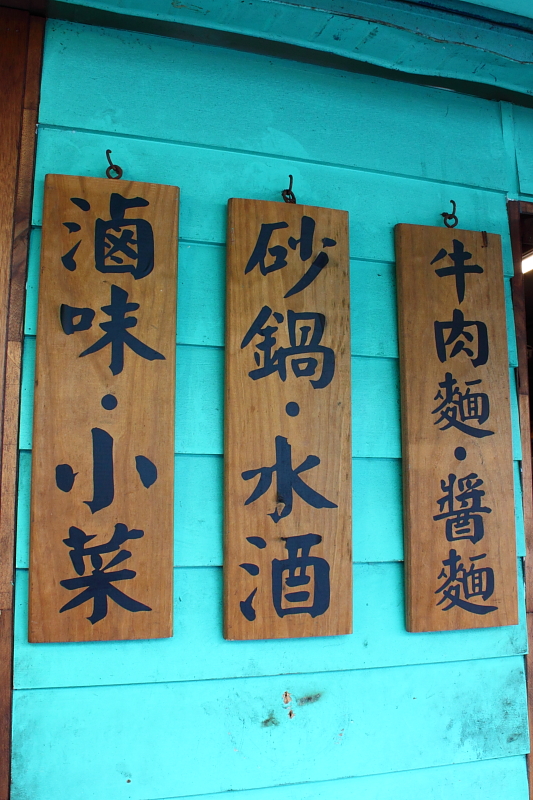 牛肉麵·醬麵
砂鍋·水酒
滷味·小菜